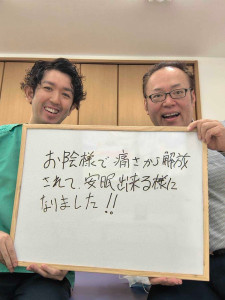 お陰様で痛さから解放
されて、安眠出来る様に
なりました!!